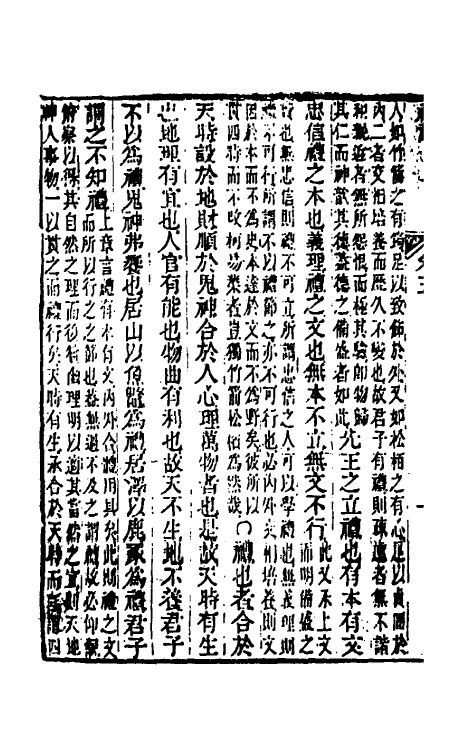 人如竹箭之有筠足以致飾於外又如松柏之有心足以貞固於
內二者交相培養而歷久不變也故君子有禮則疎遠者無不諧
和親近者無所怨恨而極其騐即物歸
其仁而神歆其德蓋德之備盛者如此
先王之立禮也有本有文
忠信禮之本也義理禮之文也無本不立無文不行
此又承上文
而明備盛之
也無忠信則禮不可立所謂忠信之人可以學禮也無義理則
禮不可行所謂不以禮節之亦不可行也必內外交相培養則文
因於本而不為史本達於文而不為野矣彼所以
貫四時而不改柯易葉者豈獨竹箭松柏為然哉
○禮也者合於
天時設於地財順於鬼神合於人心理萬物者也是故天時有生
也地理有宜也人官有能也物曲有利也故天不生地不養君子
不以為禮鬼神弗饗也居山以魚鼈為禮居澤以鹿豕為禮君子
謂之不知禮
上章言禮有本有文內外合體用具矣此則禮之文
而所以行之之節也蓋無過不及之謂故必仰觀
俯察以得其自然之理而後曲理明以適其當然之宜則天地
神人事物一以貫之而禮行矣天時有生承合於天時而言謂四